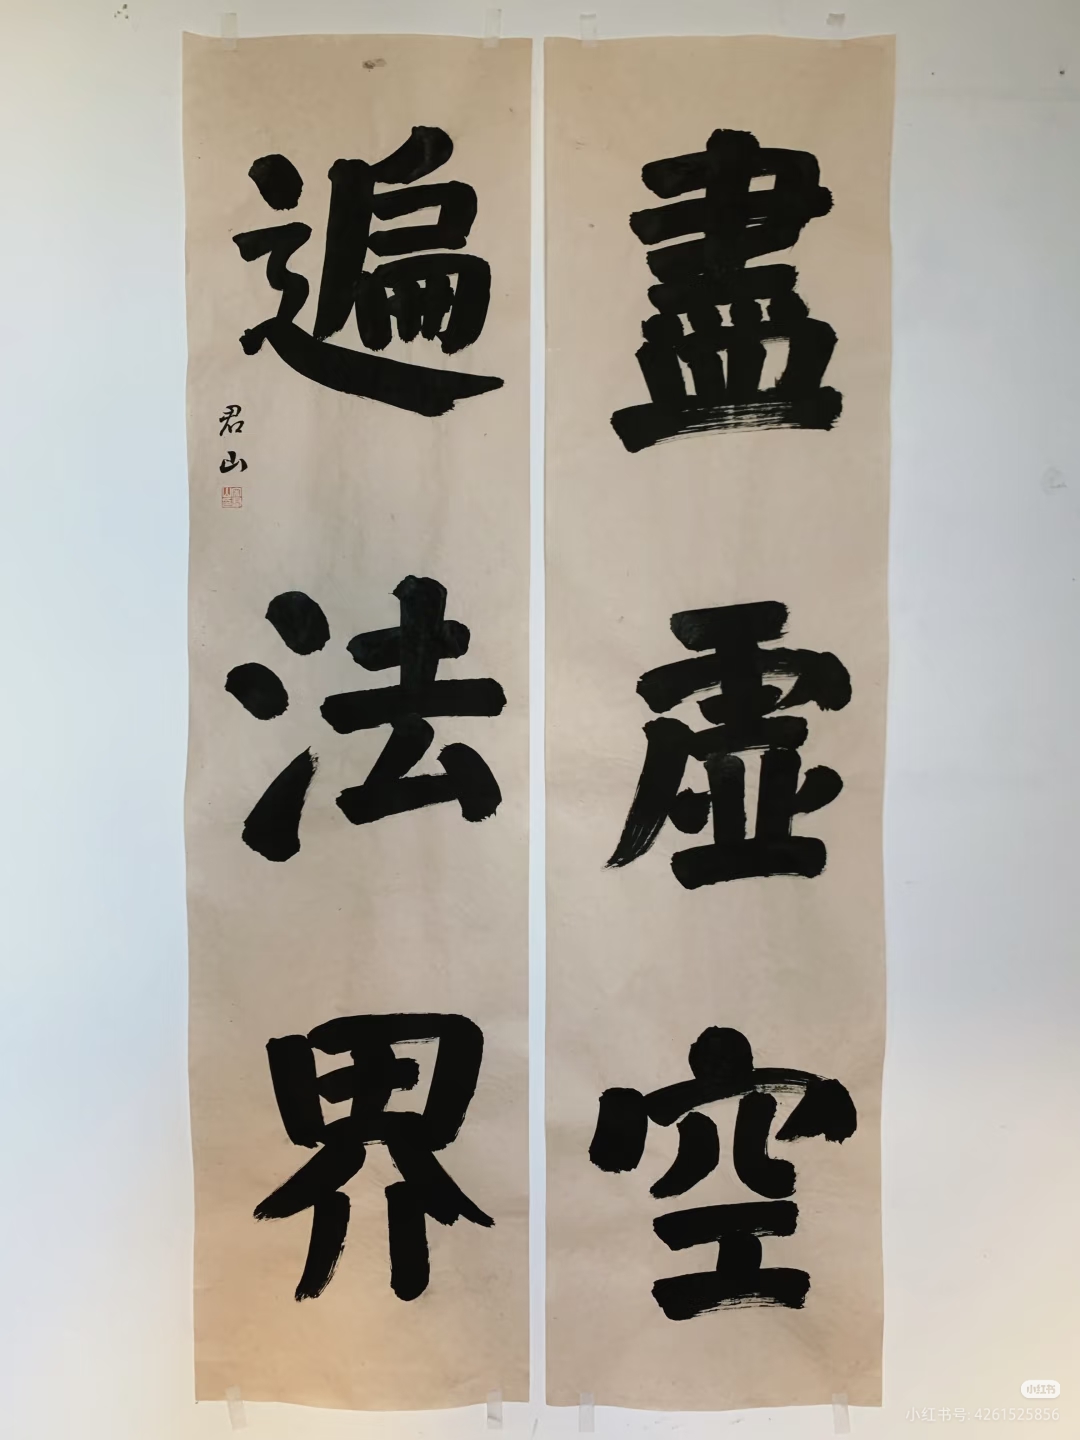 盡虛空
遍法界
君山
小红书
小红书号: 4261525856